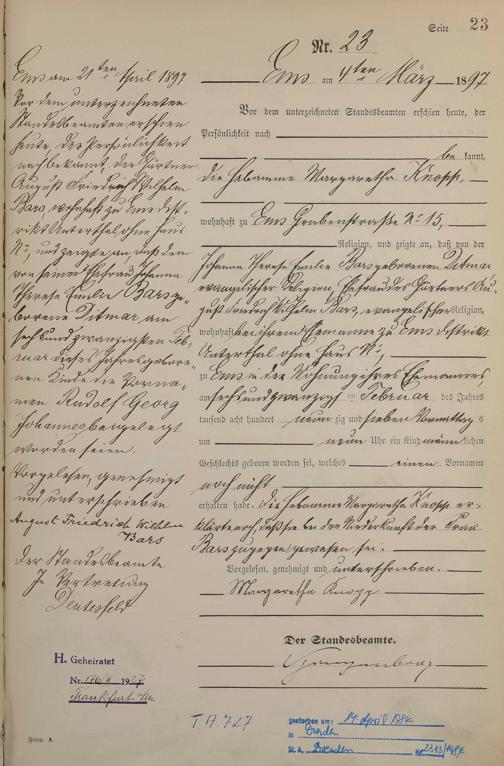 Seite 23
Nr. 23
Ems am 4ten März 1897
Vor dem unterzeichneten Standesbeamten erschien heute, der
Persönlichkeit nach
be kannt,
die Hebamme Margaretha Knopp
wohnhaft zu Ems Grabenstraße No 15,
Religion, und zeigte an, daß von der
Johanna Therese Emilie Bars geborenen Ditmar
evangelischer Religion, Ehefrau des Gärtners Au-
gust Friedrich Wilhelm Bars, evangelischer Religion,
wohnhaft bei ihrem Ehemanne zu Ems Distrikt
Unterthal ohne Haus No,
zu Ems in der Wohnung ihres Ehemannes,
am sechsundzwanzigsten Februar des Jahres
tausend acht hundert neun zig und sieben Vormittags
um neun Uhr ein Kind männlichen
Geschlechts geboren worden sei, welches einen Vornamen
noch nicht
erhalten habe. Die Hebamme Margaretha Knopp er-
klärte, daß sie bei der Niederkunft der Frau
Bars zugegen gewesen sei.
Vorgelesen, genehmigt und unterschrieben.
Margaretha Knopp
Der Standesbeamte.
Ems am 21ten April 1897
Vor dem unterzeichneten
Standesbeamten erschien
heute, der Persönlichkeit
nach bekannt, der Gärtner
August Friedrich Wilhelm
Bars, wohnhaft zu Ems Dist-
rikt Unterthal ohne Haus
No, und zeigte an, daß dem
von seiner Ehefrau Johanna
Therese Emilie Bars ge-
borene Ditmar am
sechsundzwanzigsten Feb-
ruar dieses Jahres gebore-
nen Kinde die Vorna-
men Rudolf Georg
Johannes beigelegt
worden seien.
Vorgelesen, genehmigt
und unterschrieben
August Friedrich Wilhelm
Bars
Der Standesbeamte
In Vertretung
H. Geheiratet
Nr. 1937
Frankfurt
T. A. 727
gestorben am: 14. April
in Dresden
St. A. Dresden Nr.
Form. A.